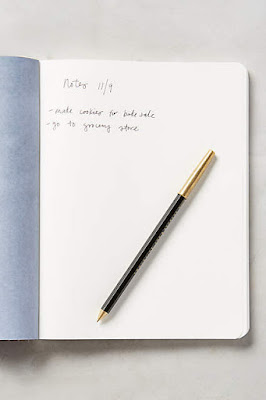 Notes 11/9
- make cookies for bake sale
- go to grocery store